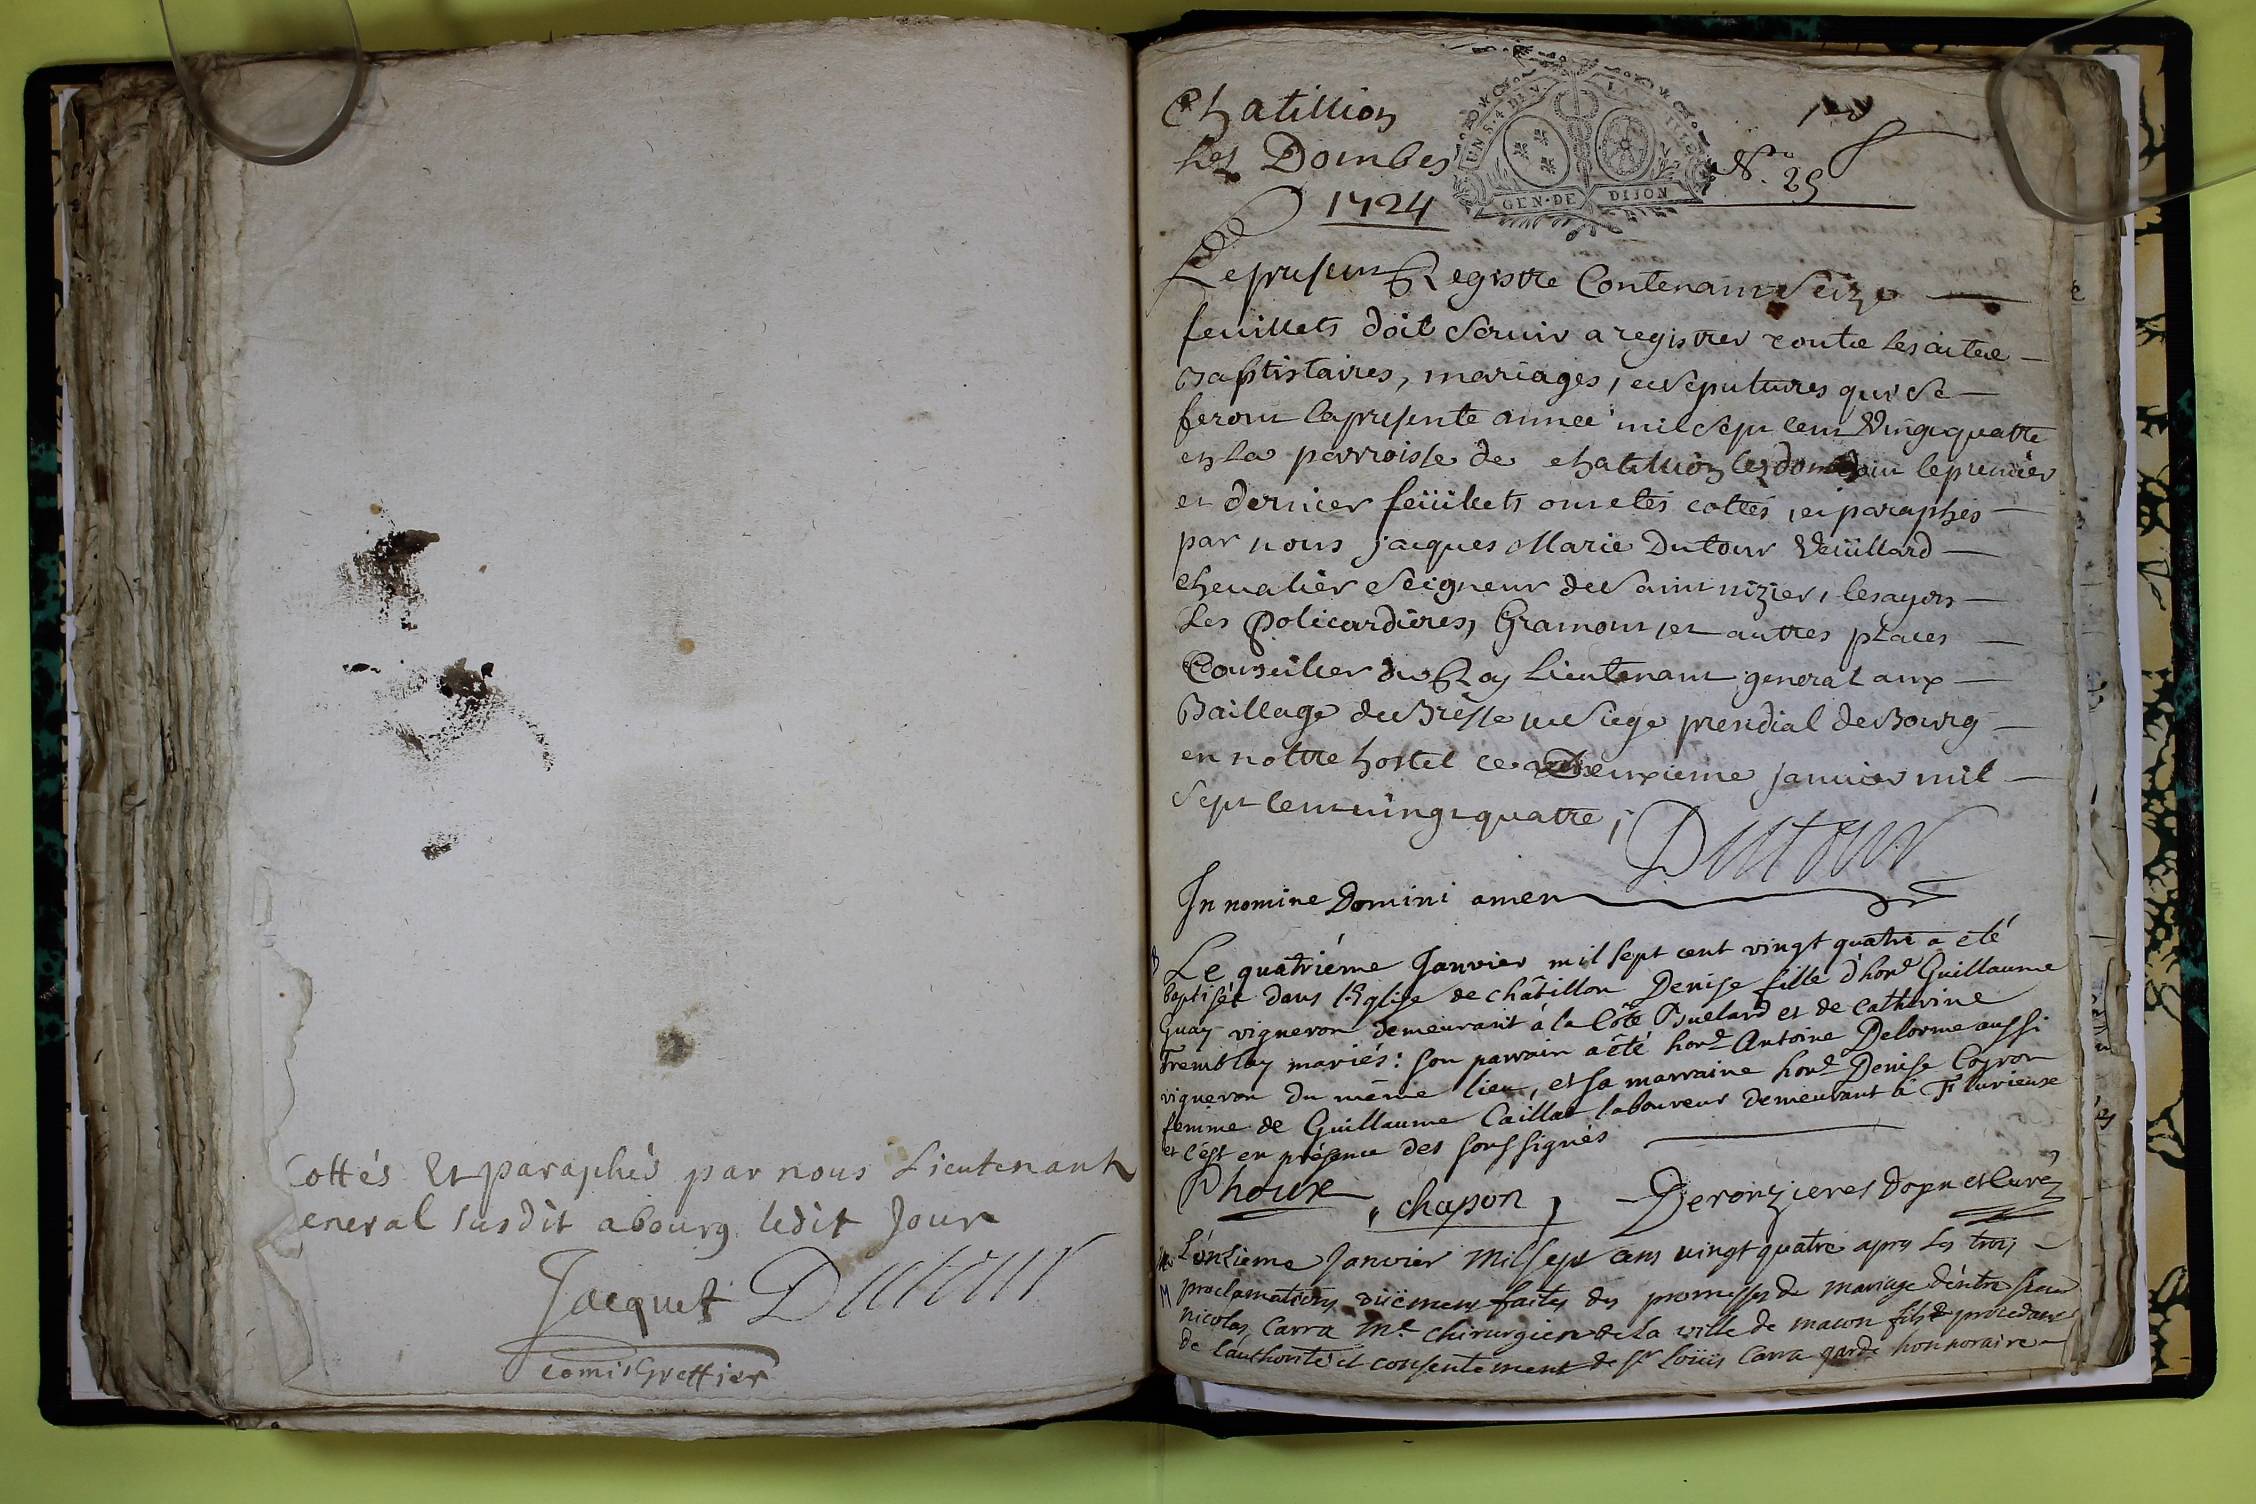 Cottés Et paraphés par nous Lieutenant
eneral susdit a bourg ledit Jour
Jacquet Dutour
comis Greffier
Chatillion
les Dombes
1724
UN S. 4 DEN.
GEN. DE DIJON
N.o 25
Le present Registre Contenant Seize
feuillets doit Servir a registrer les actes
Baptistaires, mariages, et Sepultures qui Se
feront la presente année mil Sept cent Vingt quattre
en la parroisse de chatillion les dont le premier
et dernier feüillets ont etés cottés, et paraphés
par nous jacques Marie Dutour Veüillard
chevalier Seigneur de Saint nizier, lesayon
Les Policardieres, Gramont, et autres places
Conseiller du Roy Lieutenant general aux
Baillage de Bresse et Siege presidial de Bourg
en nottre hostel ce Deuxieme janvier mil
Sept cent vingt quattre,
Dutour
In nomine Domini amen
B
Le quatriéme Janvier mil sept cent vingt quatre a eté
baptisée dans l'Eglise de châtillon Denise fille d'hon.e Guillaume
Guay vigneron demeurant à la Côte et de Catherine
Tremblay mariés: son parrain a eté hon.e Antoine Delorme aussi
vigneron du même lieu, et sa marraine hon.e Denise Coyron
femme de Guillaume Caillat laboureur demeurant à Flurieuse
et c'est en présence des soussignés
Phoux, chapon, Deronzieres dopn et Curé
M
L'onzieme Janvier Mil sept cens vingt quatre apres Les trois
proclamations düement faites des promesses de mariage d'entre sieur
nicolas Carra M.e chirurgien de La ville de macon fils procedant
de l'authorité et consentement de Sr Loüis Carra garde honnoraire